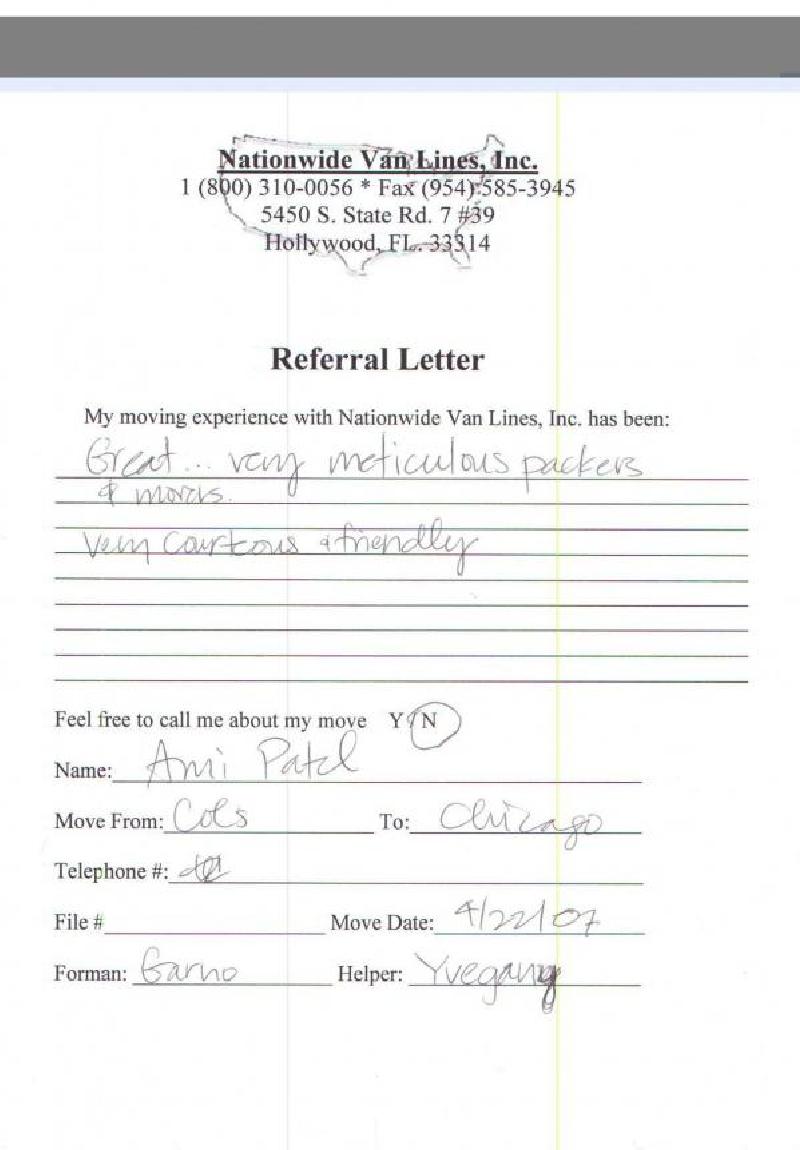 Nationwide Van Lines, Inc.
1 (800) 310-0056 * Fax (954) 585-3945
5450 S. State Rd. 7 #39
Hollywood, FL. 33314
Referral Letter
My moving experience with Nationwide Van Lines, Inc. has been:
Great... very meticulous packers
& movers.
Very courteous & friendly
Feel free to call me about my move Y/N
Name: Ami Patel
Move From: Cols To: Chicago
Telephone #:
File # Move Date: 4/22/07
Forman: Garno Helper: